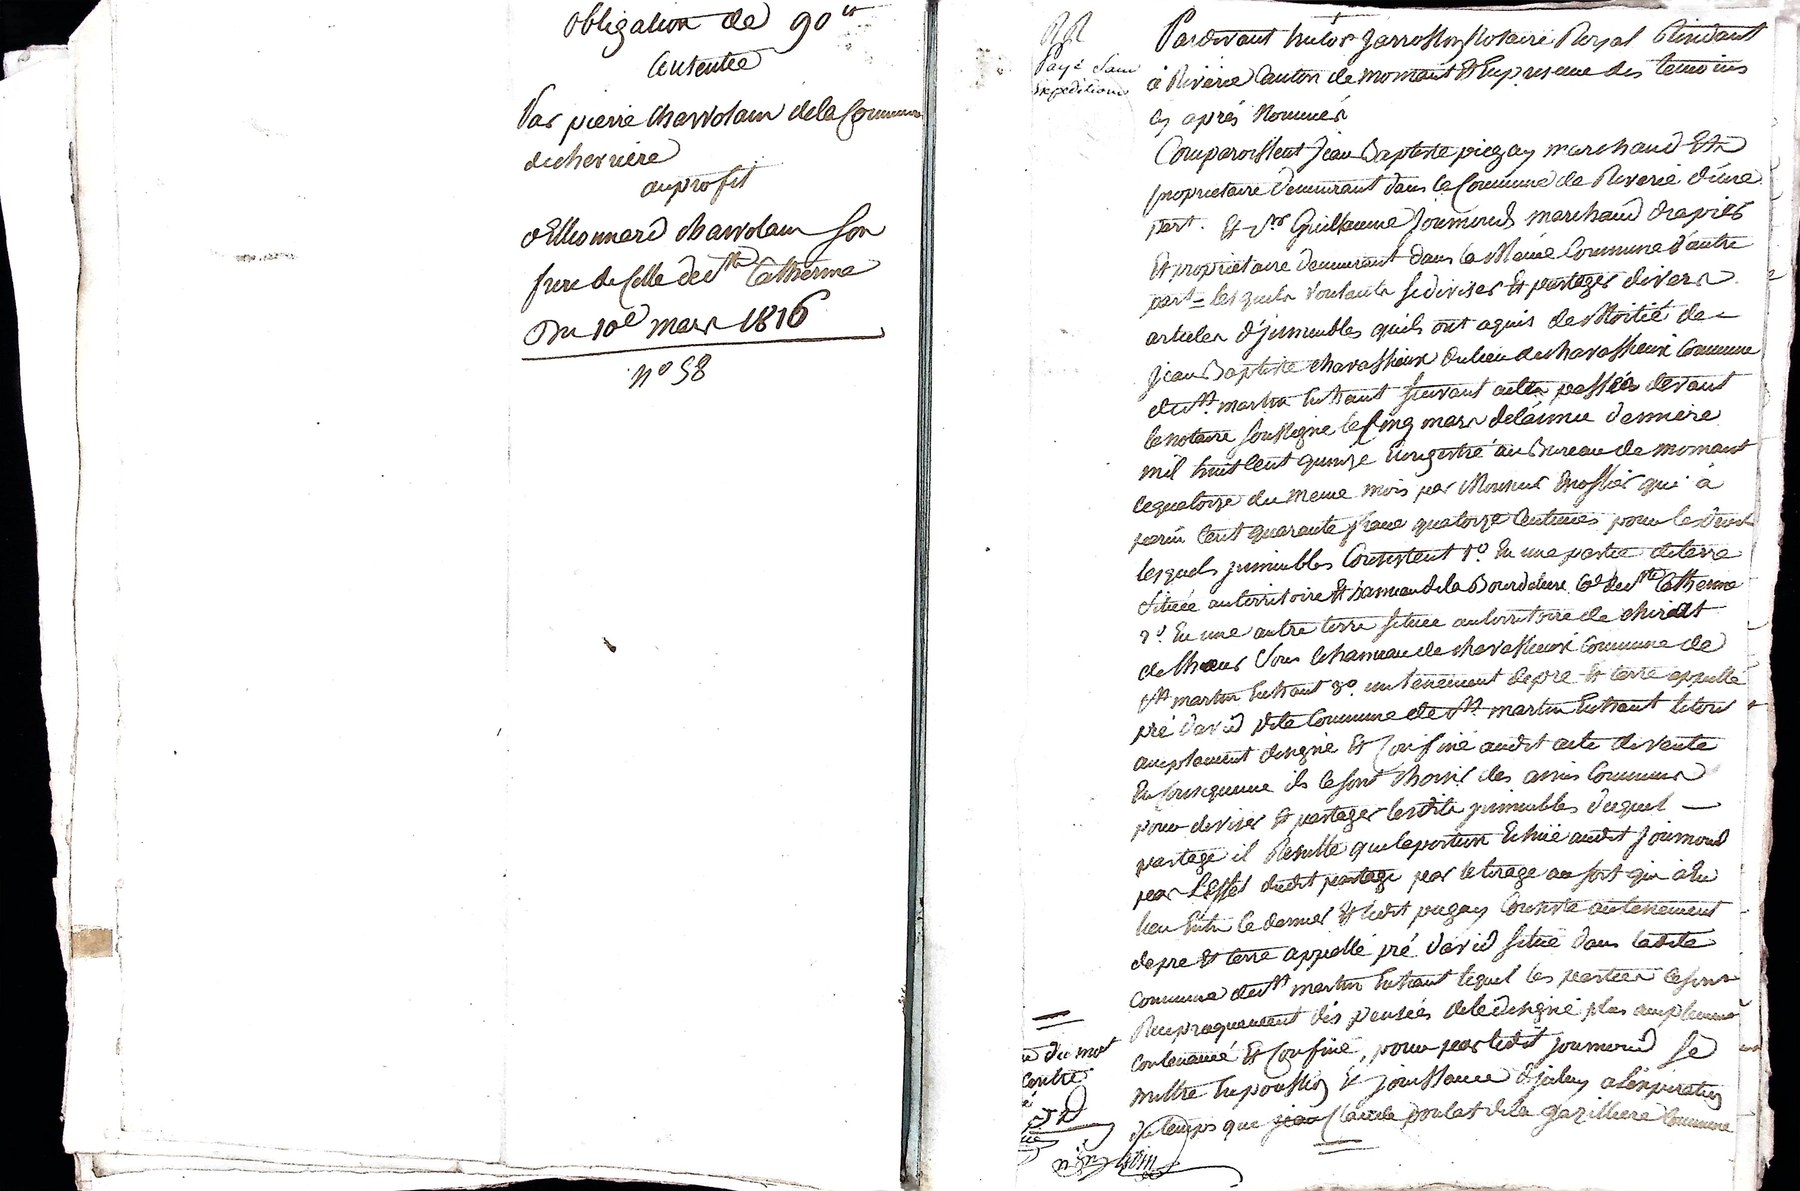 Obligation de 90 tt
Consentee
Par pierre charvolain de la Commune
de cherriere
au profit
d'Ellionnard charvolain son
frere de Celle de Ste Catherine
Du 10e mars 1816
n° 58
Payé Sans
Expedition
Pardevant Notaire Royal Residant
à Riverie Canton de Mornant Et En presence des temoins
cy aprés Nommés
Comparoissent Jean Baptiste piegay marchand Et
proprietaire demeurant dans la Commune de Riverie d'une
part. Et Sr Guillaume Joumond marchand drapier
Et proprietaire demeurant dans la Même Commune d'autre
part = lesquels voulants se diviser Et partager divers
articles d'jmmeubles qu'ils ont aquis de Moitié de
Jean Baptiste chavassieux du lieu de chavassieux Commune
de St. martin En haut suivant acte passés devant
le notaire soussigné le Cinq mars de lannée derniere
mil huit Cent quinze Enregistré au Bureau de mornant
le quatorze du même mois par Monsieur qui à
perçu Cent quarante franc quatorze Centimes pour le droit
lesquels jmmeubles Consistent 1° En une partie de terre
Située au territoire Et hameau de la Bourdeliere Cne de Ste Catherine
2° En une autre terre située au territoire de
Sous le hameau de chavassieux Commune de
St martin En haut 3° un tenement de pré Et terre appellé
pré david dite Commune de St. martin En haut le tout
amplement designé Et Confiné audit acte de vente
En Consequence ils se sont Choisis des amis Communs
pour deviser Et partager lesdits jmmeubles duquel
partage il Resulte que la portion Echue audit Joumond
par L'effet dudit partage par le tirage au sort qui à Eu
lieu Entre ce dernier Et ledit piegay Consiste au tenement
de pré Et terre appellé pré david situé dans ladite
Commune de St martin En haut lequel les parties se sont
Reciproquement dispensées de le designé plus amplement
contenancé Et Confiné, pour par ledit Joumond se
mettre En possession Et jouissance d'jceluy a l'expiration
du temps que Claude poulat de la gazilliere Commune
du mot
contre